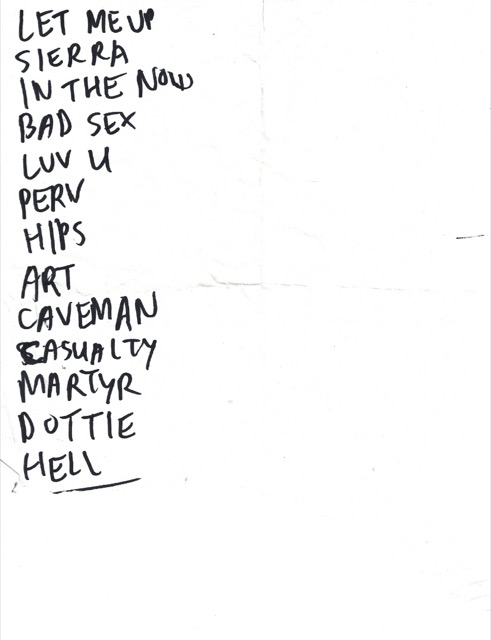 LET ME UP
SIERRA
IN THE NOW
BAD SEX
LUV U
PERV
HIPS
ART
CAVEMAN
CASUALTY
MARTYR
DOTTIE
HELL